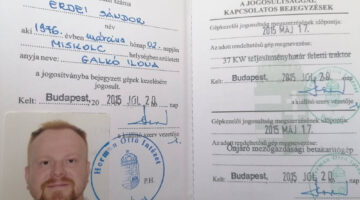 ERDEI SÁNDOR
aki 1976. évben március hónap 02. napján
MISKOLC
anyja neve: GALKÓ ILONA
a jogosítványba bejegyzett gépek kezelésére
jogosult.
Kelt: Budapest, 2015 JÚL 20. nap
a kiállító szerv vezetője
Herman Ottó Intézet
P.H.
A JOGOSULTSÁGGAL
KAPCSOLATOS BEJEGYZÉSEK
Gépkezelői jogosultság megszerzésének időpontja:
2015 MÁJ 17.
Az adott rendeltetésű gép megnevezése:
37 KW teljesítményhatár feletti traktor
Kelt: Budapest, 2015 JÚL 20. nap
a kiállító szerv vezetője
Gépkezelői jogosultság megszerzésének időpontja:
2015 MÁJ 17.
Az adott rendeltetésű gép megnevezése:
Önjáró mezőgazdasági betakarítógép
Kelt: Budapest, 2015 JÚL 20. nap
a kiállító szerv vezetője